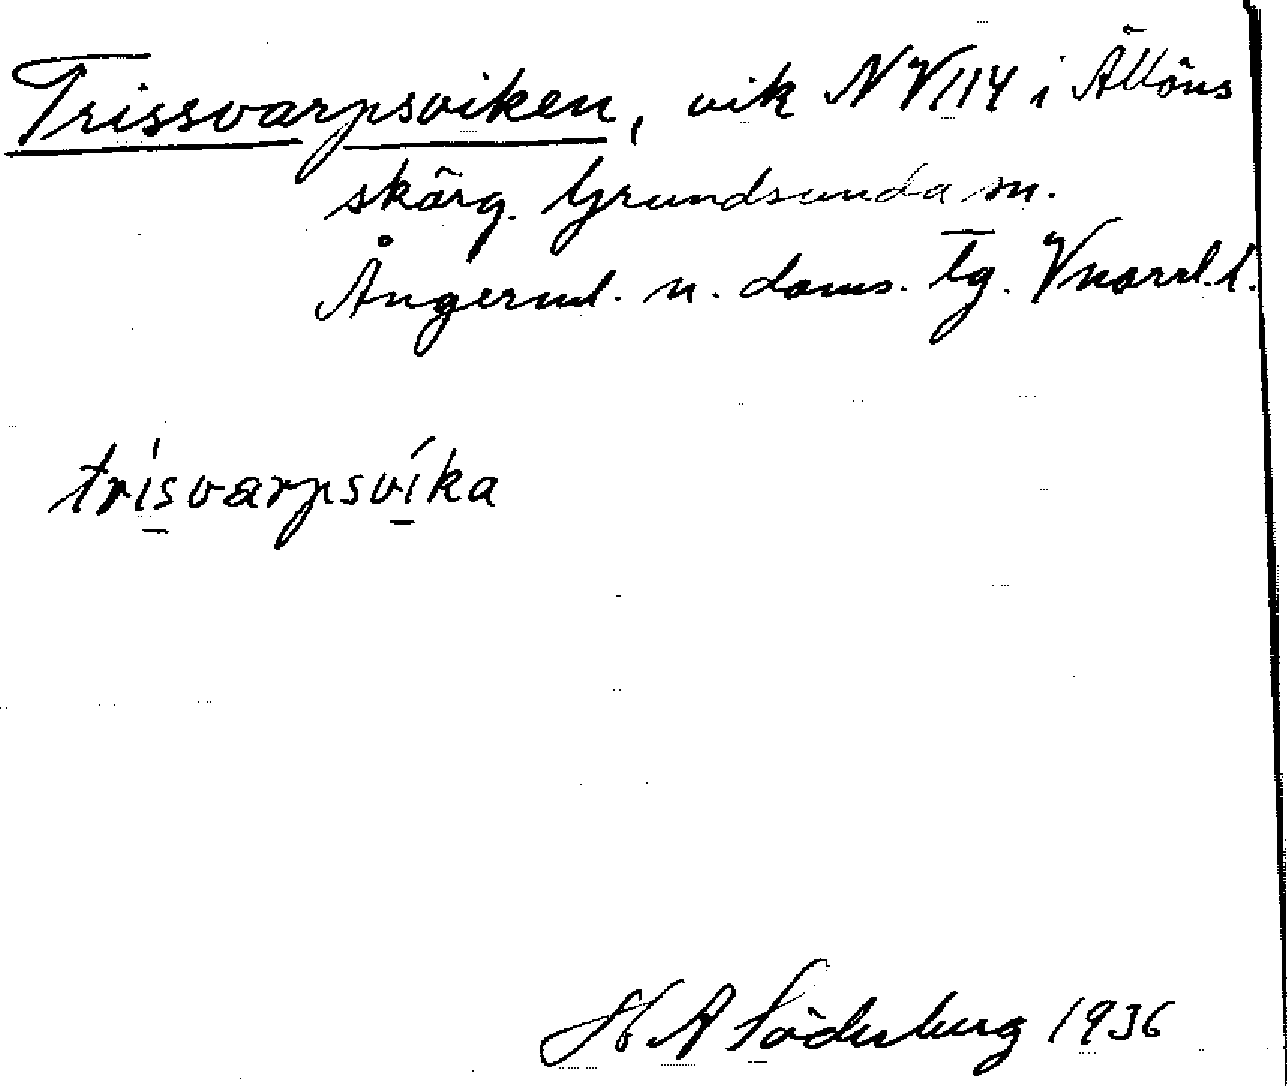 Trissvarpsviken, vik NV114 i Ällöns
skärg. Grundsunda sn.
Ångerml. n. doms. Tg. Vnorrl. l.
trisvarpsvíka
H A Söderberg 1936